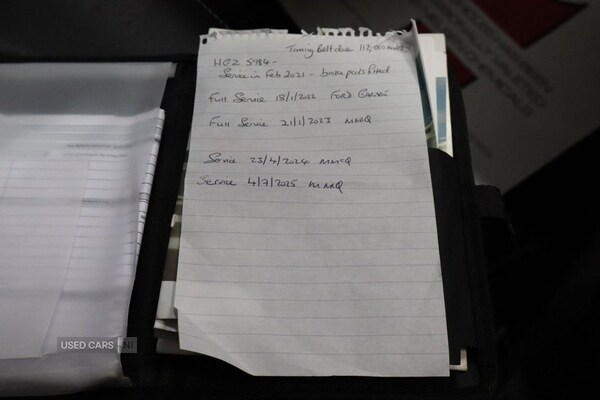 Timing Belt due 112,000 miles
HOZ 5984 -
Service in Feb 2021 - brake pads fitted
Full Service 18/1/2022 FORD
Full Service 21/1/2023
Service 23/4/2024
Service 4/7/2025
USED CARS NI